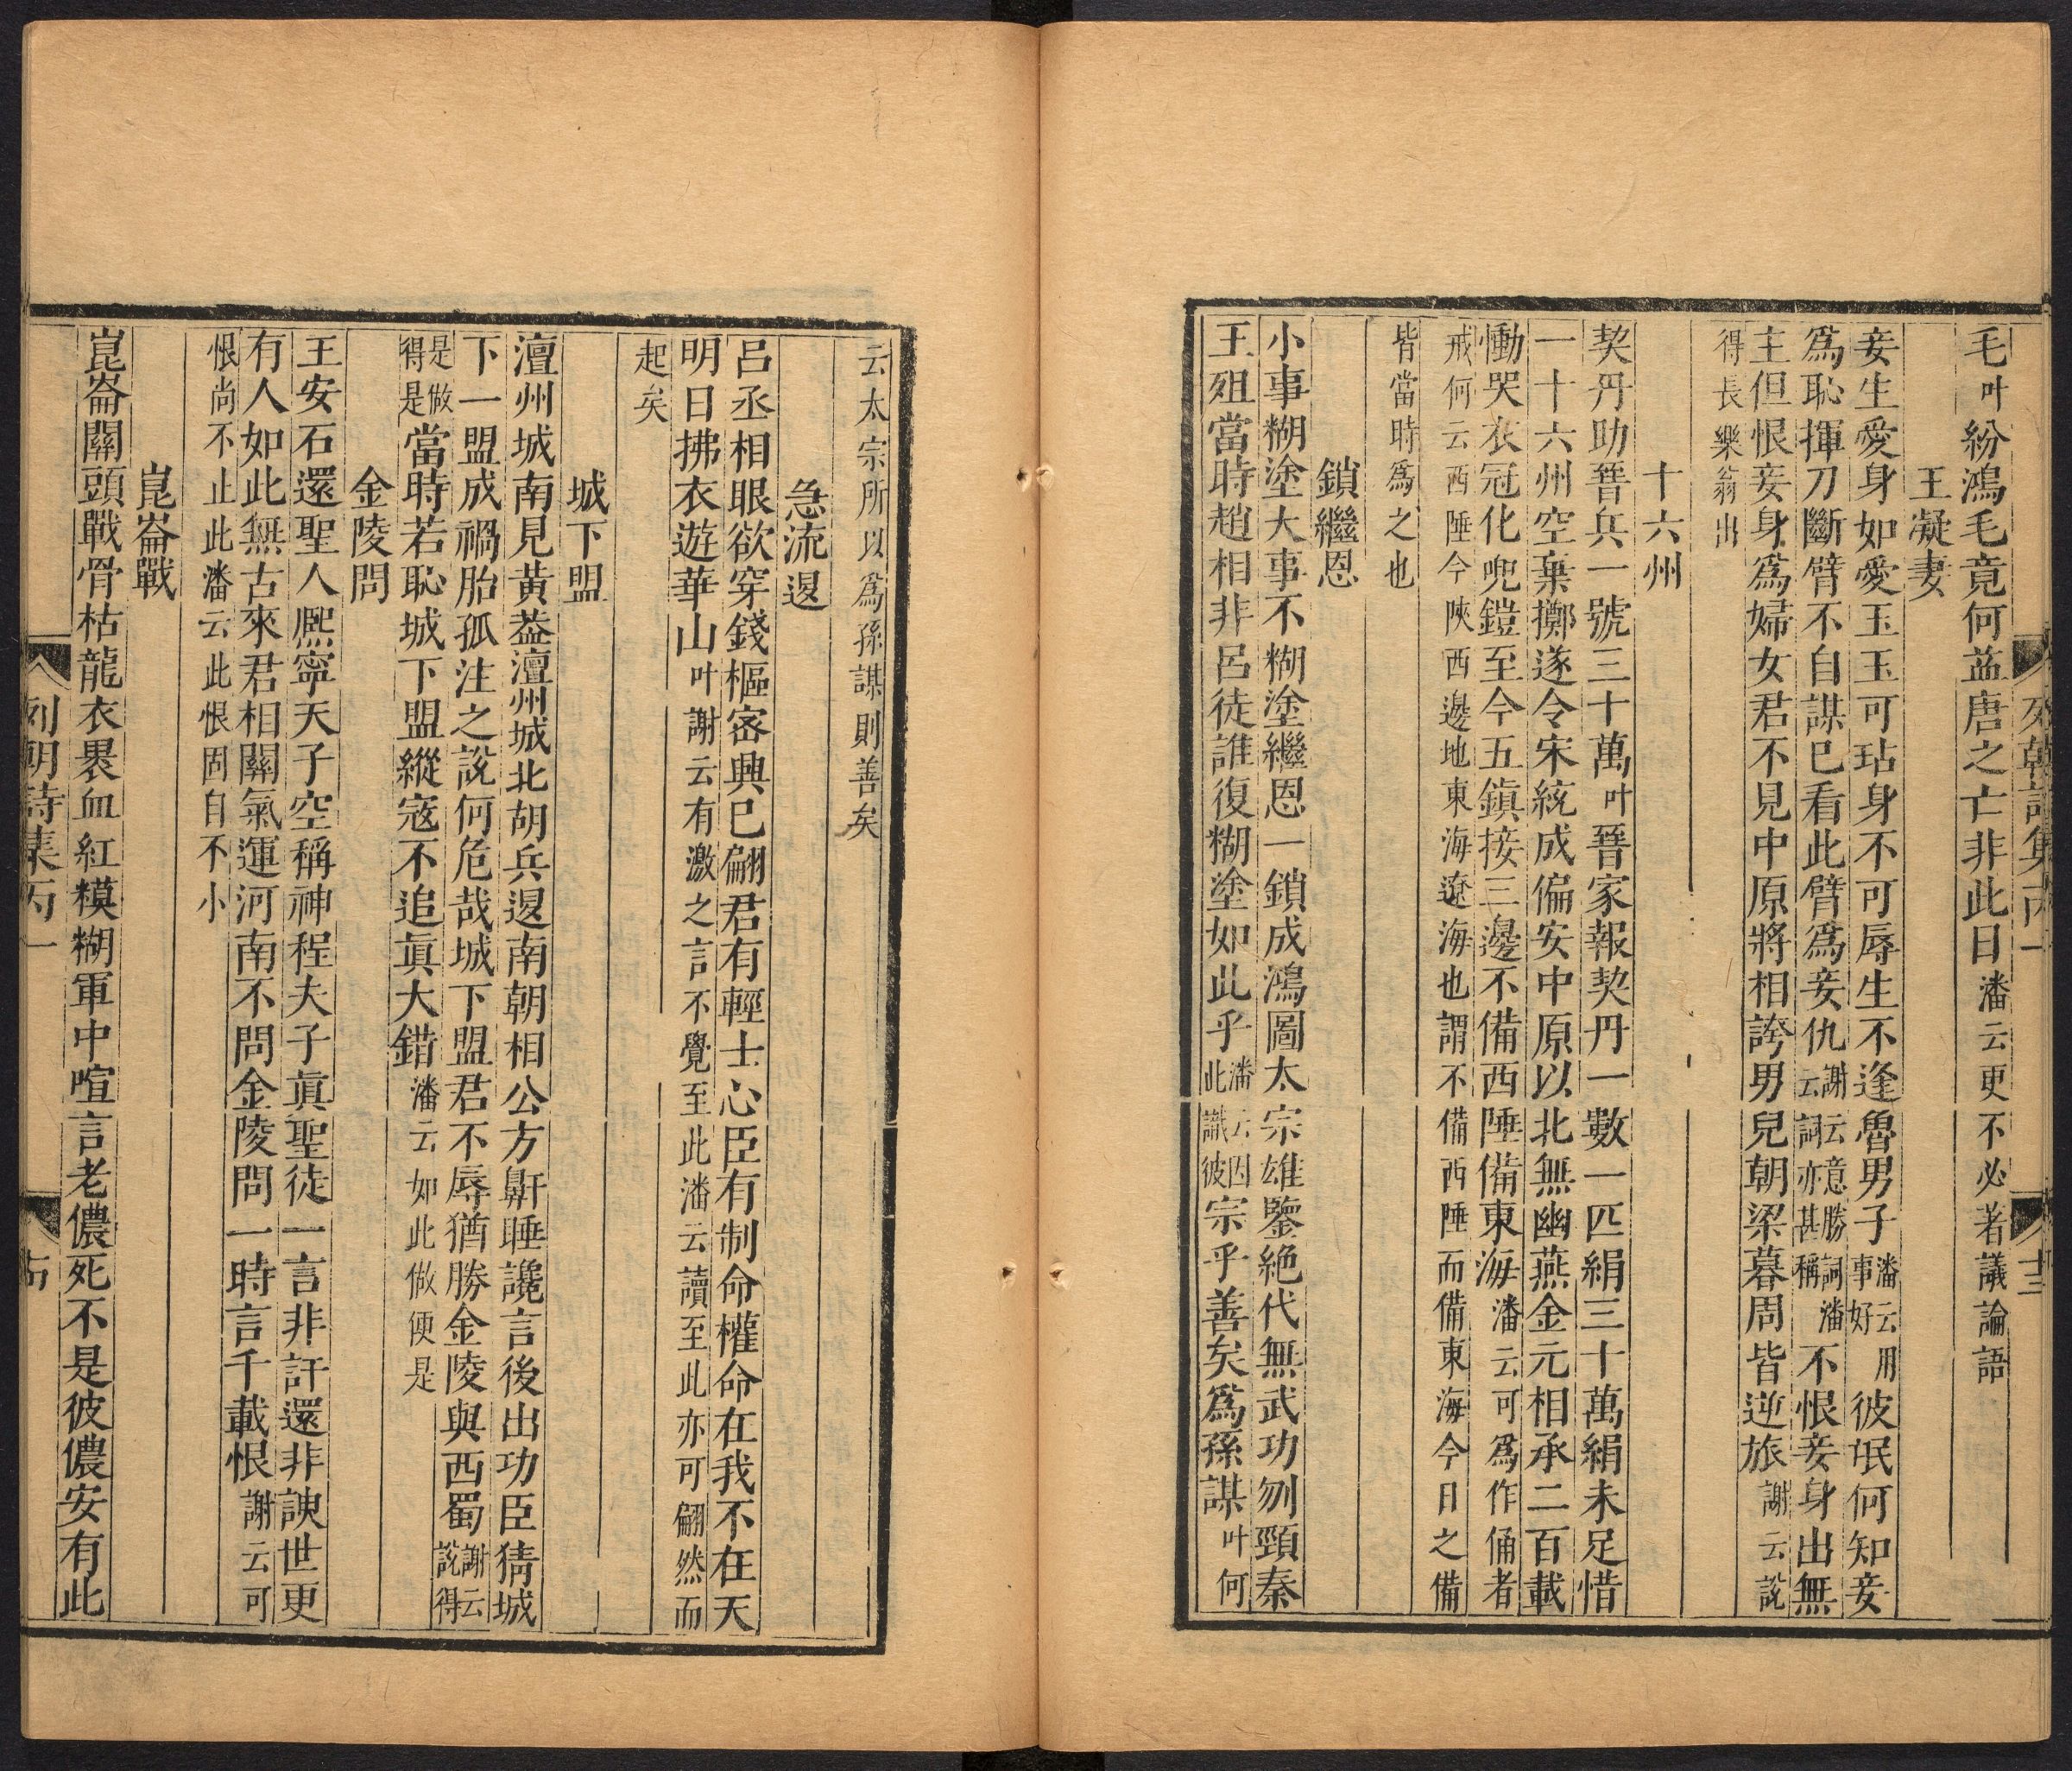 列朝詩集丙一
十三
毛叶紛鴻毛竟何益唐之亡非此日潘云更不必著議論語
王凝妻
妾生愛身如愛玉玉可玷身不可辱生不逢魯男子潘云用事好彼氓何知妾
爲恥揮刀斷臂不自謀已看此臂爲妾仇謝云意勝詞潘云詞亦甚稱不恨妾身出無
主但恨妾身爲婦女君不見中原將相誇男兒朝梁暮周皆逆旅謝云說
得長樂翁出
十六州
契丹助晉兵一號三十萬叶晉家報契丹一數一匹絹三十萬絹未足惜
一十六州空棄擲遂令宋統成偏安中原以北無幽燕金元相承二百載
慟哭衣冠化兜鎧至今五鎮接三邊不備西陲備東海潘云可爲作俑者
戒何云西陲今陝西邊地東海遼海也謂不備西陲而備東海今日之備
皆當時爲之也
鎖繼恩
小事糊塗大事不糊塗繼恩一鎖成鴻圖太宗雄鑒絶代無武功刎頸秦
王殂當時趙相非呂徒誰復糊塗如此乎潘云因此識彼宗乎善矣爲孫謀叶何
云太宗所以爲孫謀則善矣
急流退
呂丞相眼欲穿錢樞密興已翩君有輕士心臣有制命權命在我不在天
明日拂衣遊華山叶謝云有激之言不覺至此潘云讀至此亦可翩然而
起矣
城下盟
澶州城南見黃蓋澶州城北胡兵退南朝相公方鼾睡讒言後出功臣猜城
下一盟成禍胎孤注之說何危哉城下盟君不辱猶勝金陵與西蜀謝云說得
是做得是當時若恥城下盟縱寇不追真大錯潘云如此做便是
金陵問
王安石還聖人熙寧天子空稱神程夫子真聖徒一言非訐還非諛世更
有人如此無古來君相關氣運河南不問金陵問一時言千載恨謝云可
恨尚不止此潘云此恨固自不小
崑崙戰
崑崙關頭戰骨枯龍衣裹血紅糢糊軍中喧言老儂死不是彼儂安有此
列朝詩集丙一